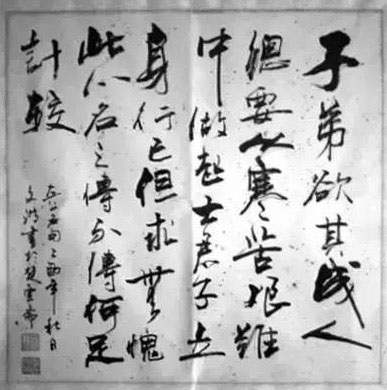 子弟欲其成人
總要从寒苦艱難
中做起士君子立
身行己但求無愧
此心名之傳不傳何足
計較
乙酉年秋日
書於